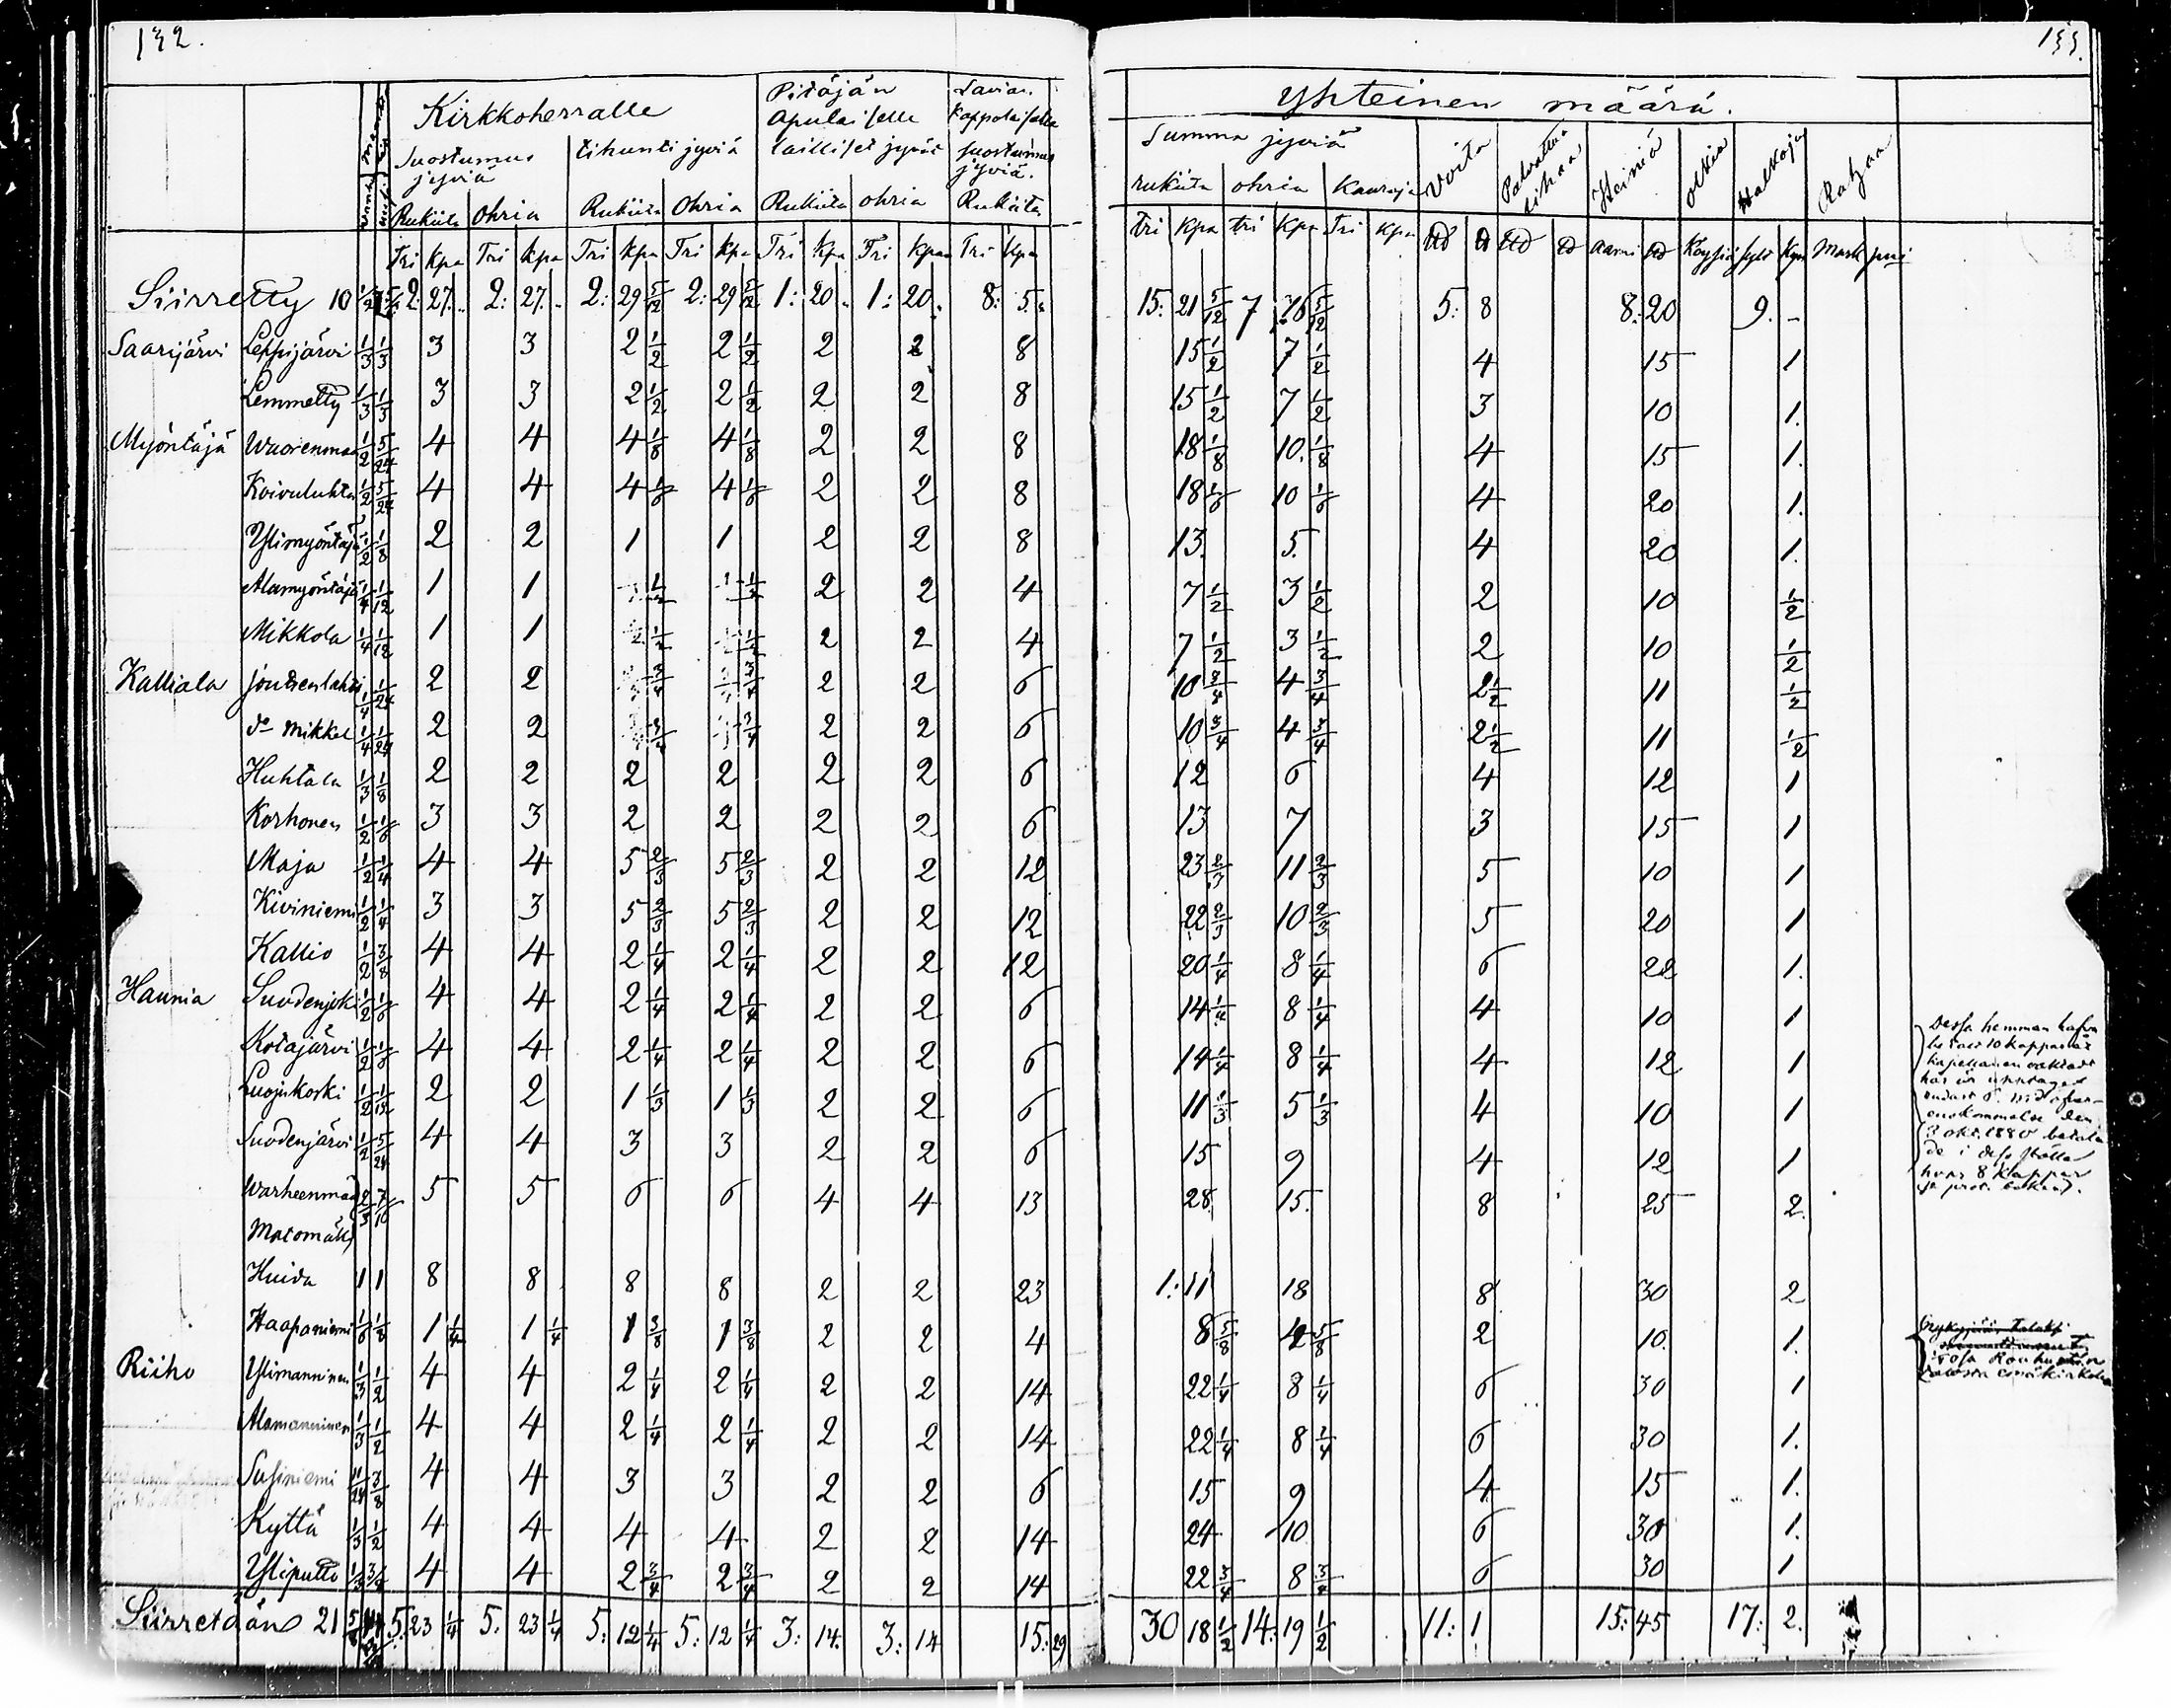 132. 133.
Kirkkoherralle Pitäjän apulaiselle lailliset jyvät Lavian kappalaiselle suostumus jyviä. Yhteinen määrä.
Suostumus jyviä tihunti jyviä Summa jyviä Voita Heiniä Olkia Halkoja
Rukiita Ohria Rukiita Ohria Rukiita ohria Rukiita rukiita ohria Kauroja
Tri Kpa Tri Kpa Tri Kpa Tri Kpa Tri Kpa Tri Kpa Tri Kpa Tri Kpa tri Kpa Tri Kpa
Siirretty 10 1/2 2: 27. 2: 27. 2: 29 5/12 2: 29 5/12 1: 20. 1: 20. 8: 5. 15: 21 5/12 7 16 5/12 5: 8 8: 20 9. -
Saarijärvi Leppijärvi 1/3 1/3 3 3 2 1/2 2 1/2 2 2 8 15 1/2 7 1/2 4 15 1
Lemmetty 1/3 1/3 3 3 2 1/2 2 1/2 2 2 8 15 1/2 7 1/2 3 10 1.
Myöntäjä Wuorenmaa 1/2 5/24 4 4 4 1/8 4 1/8 2 2 8 18 1/8 10. 1/8 4 15 1.
Koivuluhta 1/2 5/24 4 4 4 1/6 4 1/6 2 2 8 18 1/6 10 1/6 4 20 1.
Ylimyöntäjä 1/2 1/8 2 2 1 1 2 2 8 13. 5. 4 20 1.
Alamyöntäjä 1/4 1/12 1 1 1/2 1/2 2 2 4 7 1/2 3 1/2 2 10 1/2
Mikkola 1/4 1/12 1 1 1/2 1/2 2 2 4 7 1/2 3 1/2 2 10 1/2
Kalliala Joutsenlahti 1/4 1/24 2 2 3/4 3/4 2 2 6 10 3/4 4 3/4 2 1/2 11 1/2
do Mikkel 1/4 1/24 2 2 3/4 3/4 2 2 6 10 3/4 4 3/4 2 1/2 11 1/2
Huhtala 1/3 1/8 2 2 2 2 2 2 6 12 6 4 12 1
Korhonen 1/2 1/6 3 3 2 2 2 2 6 13 7 3 15 1
Maja 1/2 1/4 4 4 5 2/3 5 2/3 2 2 12 23 2/3 11 2/3 5 10 1
Kiviniemi 1/2 1/4 3 3 5 2/3 5 2/3 2 2 12 22 2/3 10 2/3 5 20 1
Kallio 1/2 3/8 4 4 2 1/4 2 1/4 2 2 12 20 1/4 8 1/4 6 22 1.
Haunia Suodenjoki 1/2 1/6 4 4 2 1/4 2 1/4 2 2 6 14 1/4 8 1/4 4 10 1
Kotajärvi 1/2 1/6 4 4 2 1/4 2 1/4 2 2 6 14 1/4 8 1/4 4 12 1
Luojukoski 1/2 1/12 2 2 1 1/3 1 1/3 2 2 6 11 1/3 5 1/3 4 10 1
Suodenjärvi 1/2 5/24 4 4 3 3 2 2 6 15 9 4 12 1
Warheenmaa 2/3 7/16 5 5 6 6 4 4 13 28 15. 8 25 2.
Matomäki
Huida 1 1 8 8 8 8 2 2 23 1: 11 18 8 30 2
Haapaniemi 1/6 1/8 1 1/4 1 1/4 1 3/8 1 3/8 2 2 4 8 5/8 4 5/8 2 10. 1.
Riiho Ylimanninen 1/3 1/2 4 4 2 1/4 2 1/4 2 2 14 22 1/4 8 1/4 6 30 1
Alamanninen 1/3 1/2 4 4 2 1/4 2 1/4 2 2 14 22 1/4 8 1/4 6 30 1.
Susiniemi 11/24 3/8 4 4 3 3 2 2 6 15 9 4 15 1.
Kyttä 1/3 1/2 4 4 4 4 2 2 14 24 10 6 30 1.
Yliputto 1/3 3/8 4 4 2 3/4 2 3/4 2 2 14 22 3/4 8 3/4 6 30 1
Siirretään 21 5. 23 1/4 5. 23 1/4 5: 12 1/4 5: 12 1/4 3: 14. 3: 14 15: 29 30 18 1/2 14: 19 1/2 11: 1 15: 45 17: 2.
Dessa hemman hafva
3 okt. 1880 betala
de i dess ställe
8 kappar